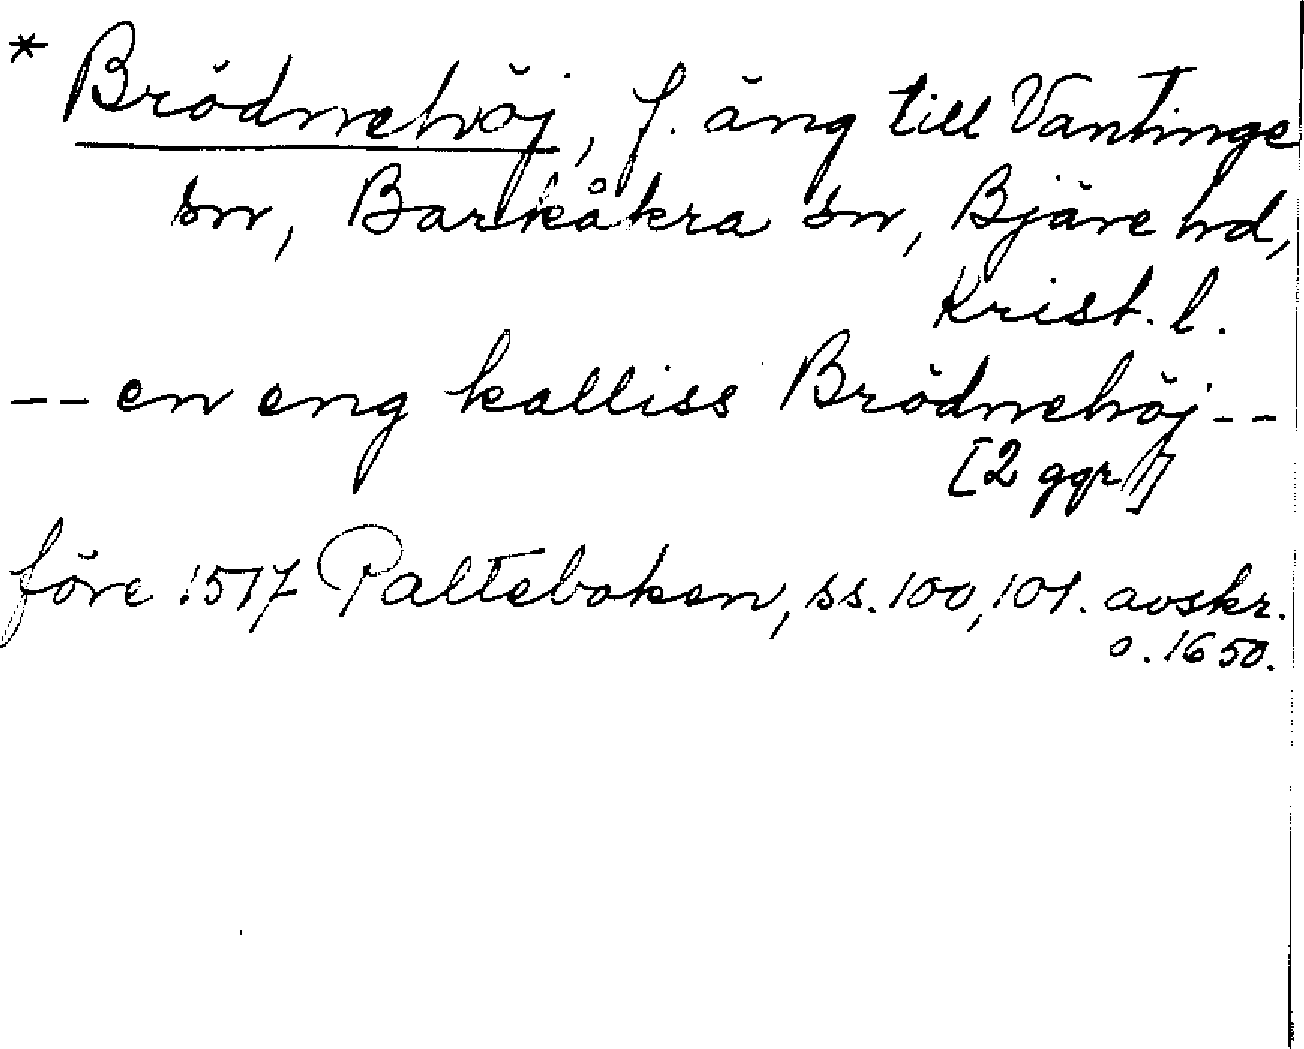 * Brödnehöj, f. äng till Vantinge
sn, Barkåkra sn, Bjäre hd,
Krist. l.
-- en eng kalliss Brödnehöj --
[2 ggr]
före 1517 Palteboken, ss. 100, 101. avskr.
o. 1650.